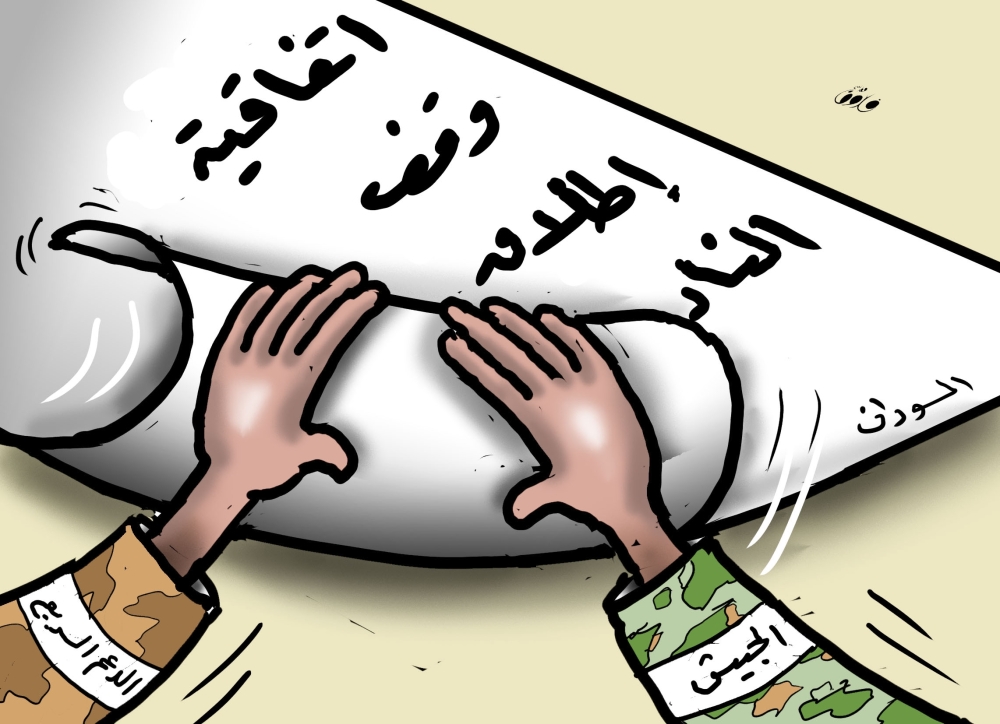 اتفاقية
وقف
إطلاق
النار
السودان
الدعم السريع
الجيش